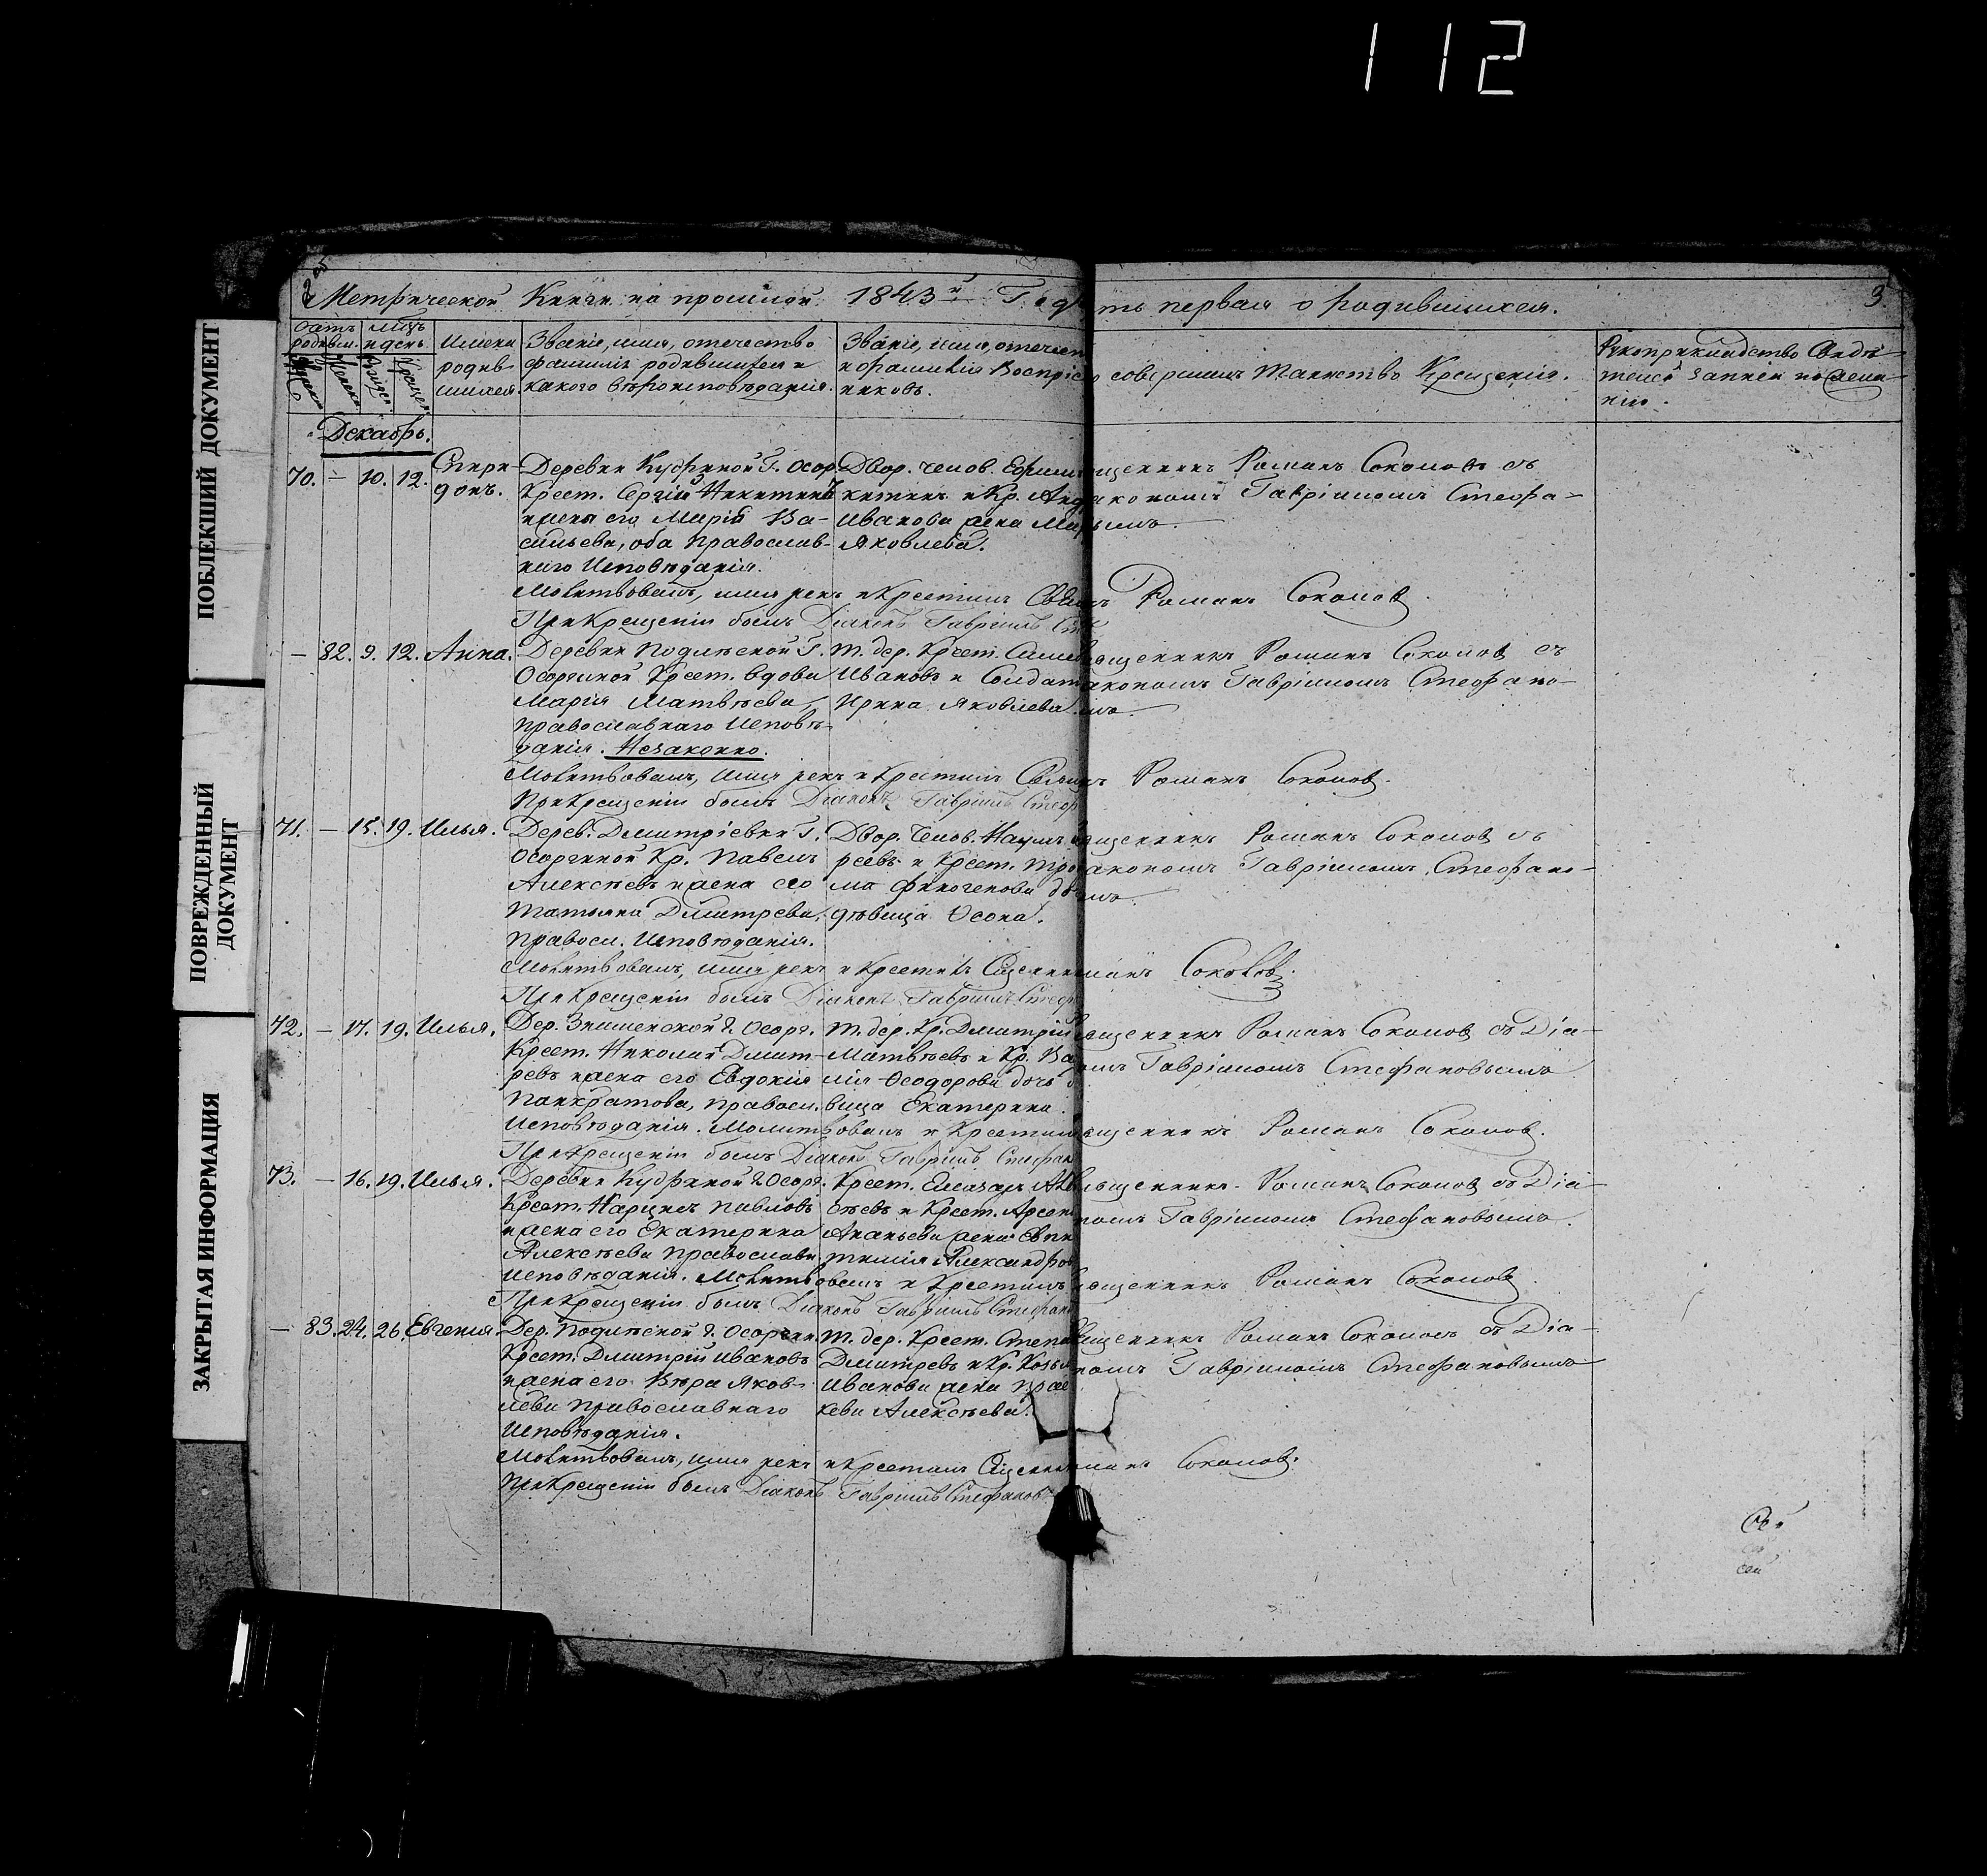 112
ПОБЛЕКШИЙ ДОКУМЕНТ
ПОВРЕЖДЕННЫЙ ДОКУМЕНТ
ЗАКРЫТАЯ ИНФОРМАЦИЯ
Метрической Книги на прошлой 1843й
ть первая о родившихся.
3
Имена родив- шихся.
Званіе, имя, отечество
фамилія родившихся и
какого вѣроисповѣданія.
Званіе, имя, отечест
и фамилія Воспріе
никовъ.
совершилъ Таинство Крещенія.
Рукоприкладство Свидѣ-
телей записи по жела-
нію.
Декабрь.
70. — 10. 12. Спири- донъ.
Деревни Кудриной Г. Осор.
Крест. Сергій Никитинъ
и жена его Марія Ва-
сильева, оба Православ-
наго Исповѣданія.
Двор. челов. Ефим
китинъ и Кр. Анд
Иванова жена Ма
Яковлева.
щенникъ Романъ Соколовъ съ
акономъ Гавріиломъ Стефа-
Молитвовалъ, имя рекъ и Крестилъ Романъ Соколовъ.
При Крещеніи былъ Діаконъ Гавріилъ
— 82. 9. 12. Анна.
Деревни Подлѣсной Г.
Осоргиной Крест. вдова
Марія Матвѣева,
Православнаго Исповѣ-
данія. Незаконно.
т. дер. Крест.
Ивановъ и Солдат
Ирина Яковлева
щенникъ Романъ Соколовъ съ
акономъ Гавріиломъ Стефано-
Молитвовалъ, имя рекъ и Крестилъ Романъ Соколовъ.
При Крещеніи былъ Діаконъ Гавріилъ Стеф
71. — 15. 19. Илья.
Дерев. Дмитріевки Г.
Осоргиной Кр. Павелъ
Алексѣевъ и жена его
Татьяна Дмитрева,
Правосл. Исповѣданія.
Двор. Челов. Наумъ
реевъ и Крест. Тро
ма Финогенова
дѣвица Ѳекла.
щенникъ Романъ Соколовъ съ
акономъ Гавріиломъ Стефано-
Молитвовалъ, имя рекъ и Крестилъ Соколовъ.
При Крещеніи былъ Діаконъ Гавріилъ Стеф
72. — 17. 19. Илья.
Дер. Знаменской Г. Осорг.
Крест. Николай Дмит-
ревъ и жена его Евдокія
Панкратова, правосл.
Исповѣданія.
т. дер. Кр. Дмитрій
Матвѣевъ и Кр.
Ѳеодорова дочь
вица Екатерина.
щенникъ Романъ Соколовъ съ Діа-
Гавріиломъ Стефановымъ
Молитвовалъ и Крестилъ щенникъ Романъ Соколовъ.
При Крещеніи былъ Діаконъ Гавріилъ Стефан
73. — 16. 19. Илья.
Деревни Кудриной Г. Осорг.
Крест. Наркисъ Павловъ
и жена его Екатерина
Алексѣева Православн.
Исповѣданія.
Крест. Елеазаръ
сѣевъ и Крест. Арсен
Ананьева жена
Александров
щенникъ Романъ Соколовъ съ Діа-
номъ Гавріиломъ Стефановымъ.
Молитвовалъ и Крестилъ щенникъ Романъ Соколовъ
При Крещеніи былъ Діаконъ Гавріилъ Стефан
— 83. 24. 26. Евгенія.
Дер. Подлѣсной Г. Осоргин.
Крест. Дмитрій Ивановъ
и жена его Вѣра Яков-
лева Православнаго
Исповѣданія.
т. дер. Крест. Степ
Дмитревъ и Кр. Козьм
Иванова жена Прас
кева Алексѣева.
щенникъ Романъ Соколовъ съ Діа-
номъ Гавріиломъ Стефановымъ
Молитвовалъ, имя рекъ и Крестилъ Соколовъ.
При Крещеніи былъ Діаконъ Гавріилъ Стефановъ